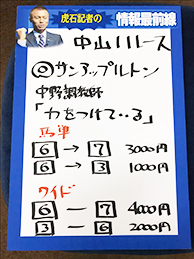 虎石記者の
情報最前線
中山11レース
◎サンアップルトン
中野調教師
「力をつけている」
馬単
6→7 3000円
6→3 1000円
ワイド
6-7 4000円
3-6 2000円